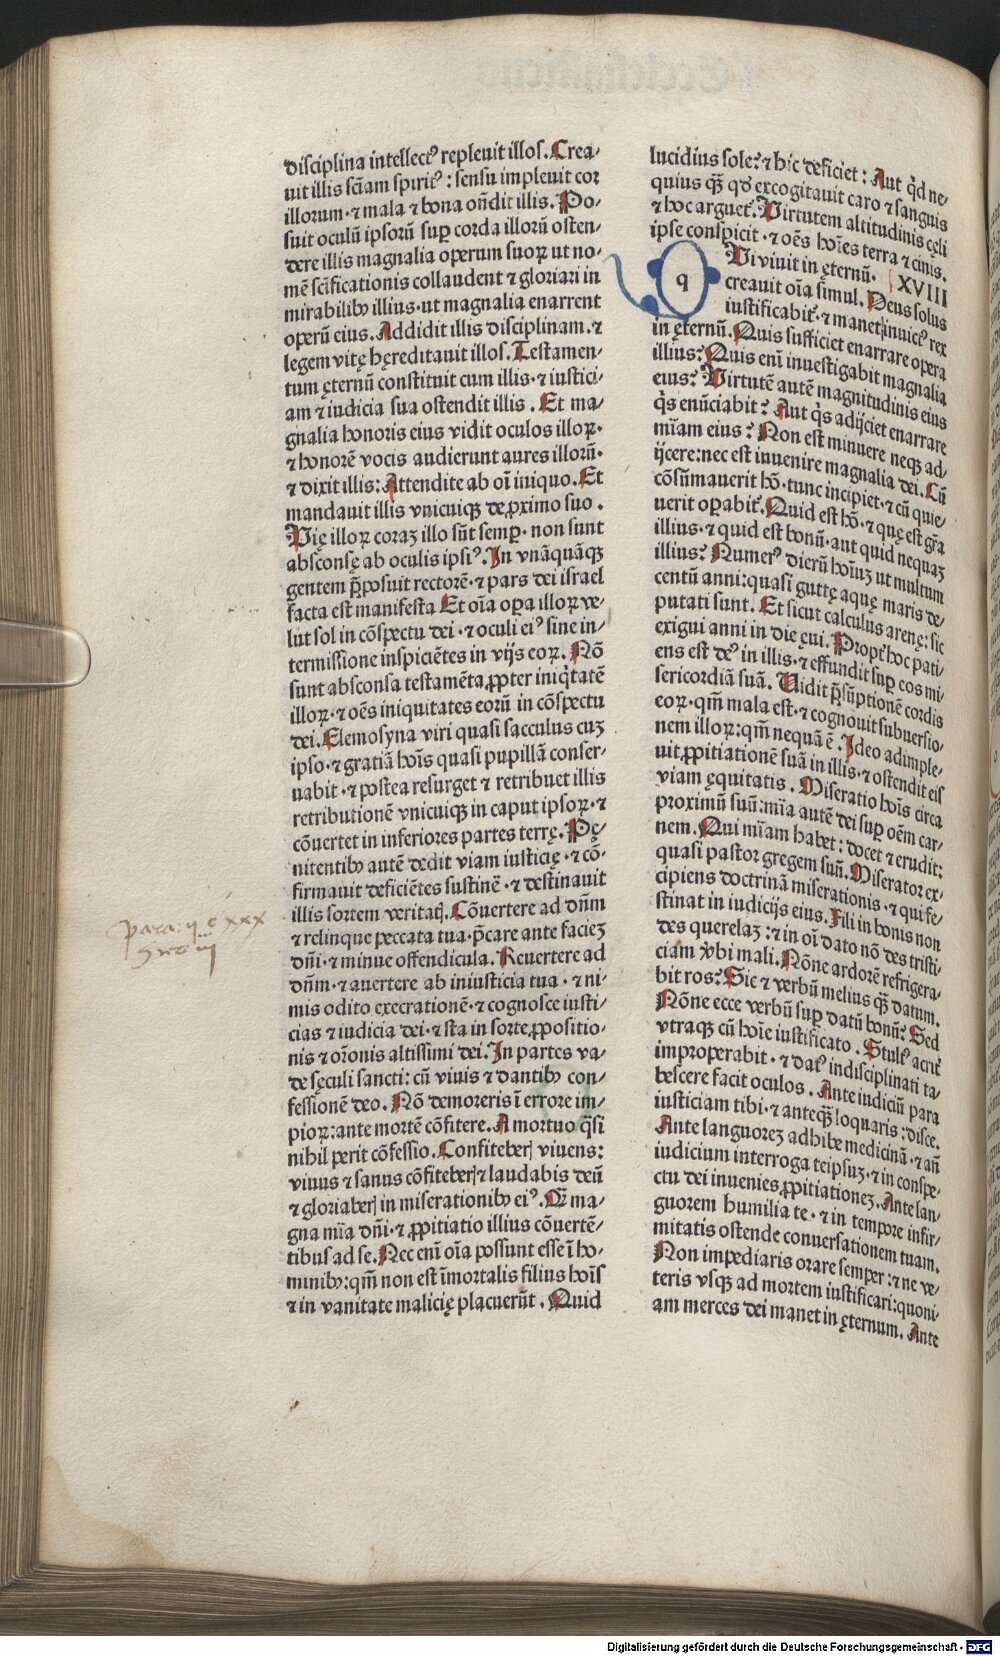 disciplina intellectꝰ repleuit illos. Crea-
uit illis sciam spiritꝰ: sensu impleuit cor
illorum· ⁊ mala ⁊ bona oñdit illis. Po-
suit oculū ipsorū sup̱ corda illorū osten-
dere illis magnalia operum suoꝝ ut no-
mē scificationis collaudent ⁊ gloriari in
mirabilibꝰ illius· ut magnalia enarrent
operū eius. Addidit illis disciplinam· ⁊
legem vitę hęreditauit illos. Testamen-
tum ęternū constituit cum illis· ⁊ iustici-
am ⁊ iudicia sua ostendit illis. Et ma-
gnalia honoris eius vidit oculos illoꝝ·
⁊ honorē vocis audierunt aures illorū·
⁊ dixit illis: Attendite ab oī iniquo. Et
mandauit illis vnicuiqꝫ de ꝓximo suo.
Vię illoꝝ coraꝫ illo sūt semp̱· non sunt
absconsę ab oculis ipsiꝰ. In vnāquāqꝫ
gentem p̄posuit rectorē· ⁊ pars dei israel
facta est manifesta Et oīa op̱a illoꝝ ve-
lut sol in cōspectu dei· ⁊ oculi eiꝰ sine in-
termissione inspiciētes in vijs eoꝝ. Nō
sunt absconsa testamēta ꝓpter iniq̇tatē
illoꝝ· ⁊ oēs iniquitates eorū in cōspectu
dei. Elemosyna viri quasi sacculus cuꝫ
ipso· ⁊ gratiā hoīs quasi pupillā conser-
uabit· ⁊ postea resurget ⁊ retribuet illis
retributionē vnicuiqꝫ in caput ipsoꝝ· ⁊
cōuertet in inferiores partes terrę. Pę-
nitentibꝰ autē dedit viam iusticię· ⁊ cō-
firmauit deficiētes sustinē· ⁊ destinauit
illis sortem veritatꝭ. Cōuertere ad dn̄m
⁊ relinque peccata tua· p̄care ante facieꝫ
dn̄i· ⁊ minue offendicula. Reuertere ad
dn̄m· ⁊ auertere ab iniusticia tua· ⁊ ni-
mis odito execrationē· ⁊ cognosce iusti-
cias ⁊ iudicia dei· ⁊ sta in sorte ꝓpositio-
nis ⁊ orōnis altissimi dei. In partes va-
de sęculi sancti: cū viuis ⁊ dantibꝰ con-
fessionē deo. Nō demoreris ī errore im-
pioꝝ: ante mortē cōfitere. A mortuo q̄si
nihil perit cōfessio. Confiteberꝭ viuens:
viuus ⁊ sanus cōfiteberꝭ ⁊ laudabis deū
⁊ gloriaberꝭ in miserationibꝰ eiꝰ. Q̄ ma-
gna mīa dn̄i· ⁊ ꝓpitiatio illius cōuertē-
tibus ad se. Nec enī oīa possunt esse ī ho-
minibꝰ: qm̄ non est īmortalis filius hoīs
⁊ in vanitate malicię placuerūt. Quid
lucidius sole? ⁊ hic deficiet: Aut qd̄ ne-
quius qꝫ̄ qd̄ excogitauit caro ⁊ sanguis
⁊ hoc arguet᷑. Virtutem altitudinis cęli
ipse conspicit· ⁊ oēs hoīes terra ⁊ cinis.
q Vi viuit in ęternū· XVIII
creauit oīa simul. Deus solus
iustificabit᷑· ⁊ manet inuictꝰ rex
in ęternū. Quis sufficiet enarrare opera
illius? Quis enī inuestigabit magnalia
eius? Virtutē autē magnitudinis eius
q̇s enūciabit? Aut q̇s adijciet enarrare
mīam eius? Non est minuere neqꝫ ad-
ijcere: nec est inuenire magnalia dei. Cū
cōsūmauerit hō· tunc incipiet· ⁊ cū quie-
uerit op̱abit᷑. Quid est hō· ⁊ quę est gr̄a
illius· ⁊ quid est bonū· aut quid nequaꝫ
illius? Numerꝰ dierū hoīuꝫ ut multum
centū anni: quasi guttę aquę maris de-
putati sunt. Et sicut calculus arenę: sic
exigui anni in die ęui. Propt᷑ hoc pati-
ens est deꝰ in illis· ⁊ effundit sup̱ eos mi-
sericordiā suā. Vidit p̄sūptionē cordis
eoꝝ· qm̄ mala est· ⁊ cognouit subuersio-
nem illoꝝ: qm̄ nequā ē. Ideo adimple-
uit ꝓpitiationē suā in illis· ⁊ ostendit eis
viam ęquitatis. Miseratio hoīs circa
proximū suū: mīa autē dei sup̱ oēm car-
nem. Qui mīam habet: docet ⁊ erudit:
quasi pastor gregem suū. Miserator ex-
cipiens doctrinā miserationis· ⁊ qui fe-
stinat in iudicijs eius. Fili in bonis non
des querelaꝫ: ⁊ in oī dato nō des tristi-
ciam v̄bi mali. Nōne ardorē refrigera-
bit ros? Sic ⁊ verbū melius qꝫ̄ datum.
Nōne ecce verbū sup̱ datū bonū? Sed
vtraqꝫ cū hoīe iustificato. Stultꝰ acrit᷑
improperabit· ⁊ datꝰ indisciplinati ta-
bescere facit oculos. Ante iudiciū para
iusticiam tibi· ⁊ anteqꝫ̄ loquaris: disce.
Ante languoreꝫ adhibe medicinā· ⁊ an̄
iudicium interroga teipsuꝫ· ⁊ in conspe-
ctu dei inuenies ꝓpitiationeꝫ. Ante lan-
guorem humilia te· ⁊ in tempore infir-
mitatis ostende conuersationem tuam.
Non impediaris orare semper: ⁊ ne ve-
teris vsqꝫ ad mortem iustificari: quoni-
am merces dei manet in ęternum. Ante
para: ij c XXX
Digitalisierung gefördert durch die Deutsche Forschungsgemeinschaft - DFG